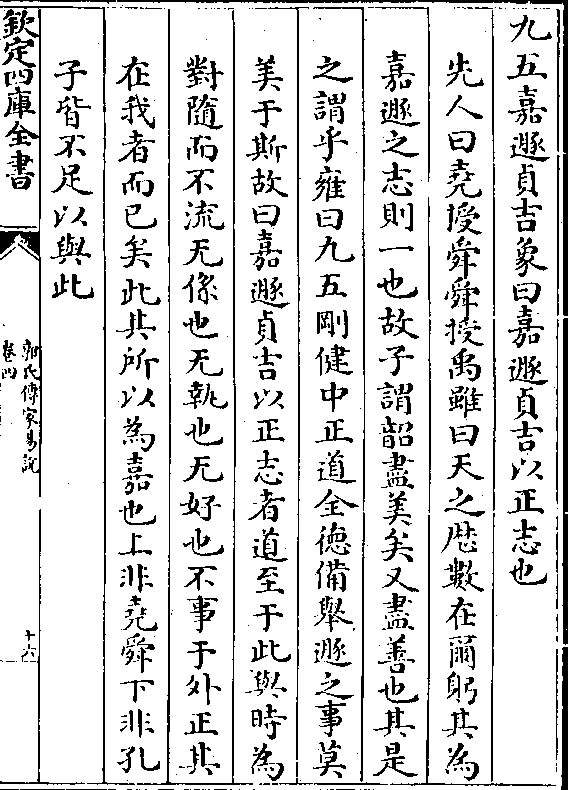 九五嘉遯貞吉象曰嘉遯貞吉以正志也
先人曰堯授舜舜授禹雖曰天之厯數在爾躬其為
嘉遯之志則一也故子謂韶盡美矣又盡善也其是
之謂乎雍曰九五剛健中正道全徳備舉遯之事莫
美于斯故曰嘉遯貞吉以正志者道至于此與時為
對隨而不流无係也无執也无好也不事于外正其
在我者而已矣此其所以為嘉也上非堯舜下非孔
子皆不足以與此
欽定四庫全書
郭氏傳家易說
卷四
十六